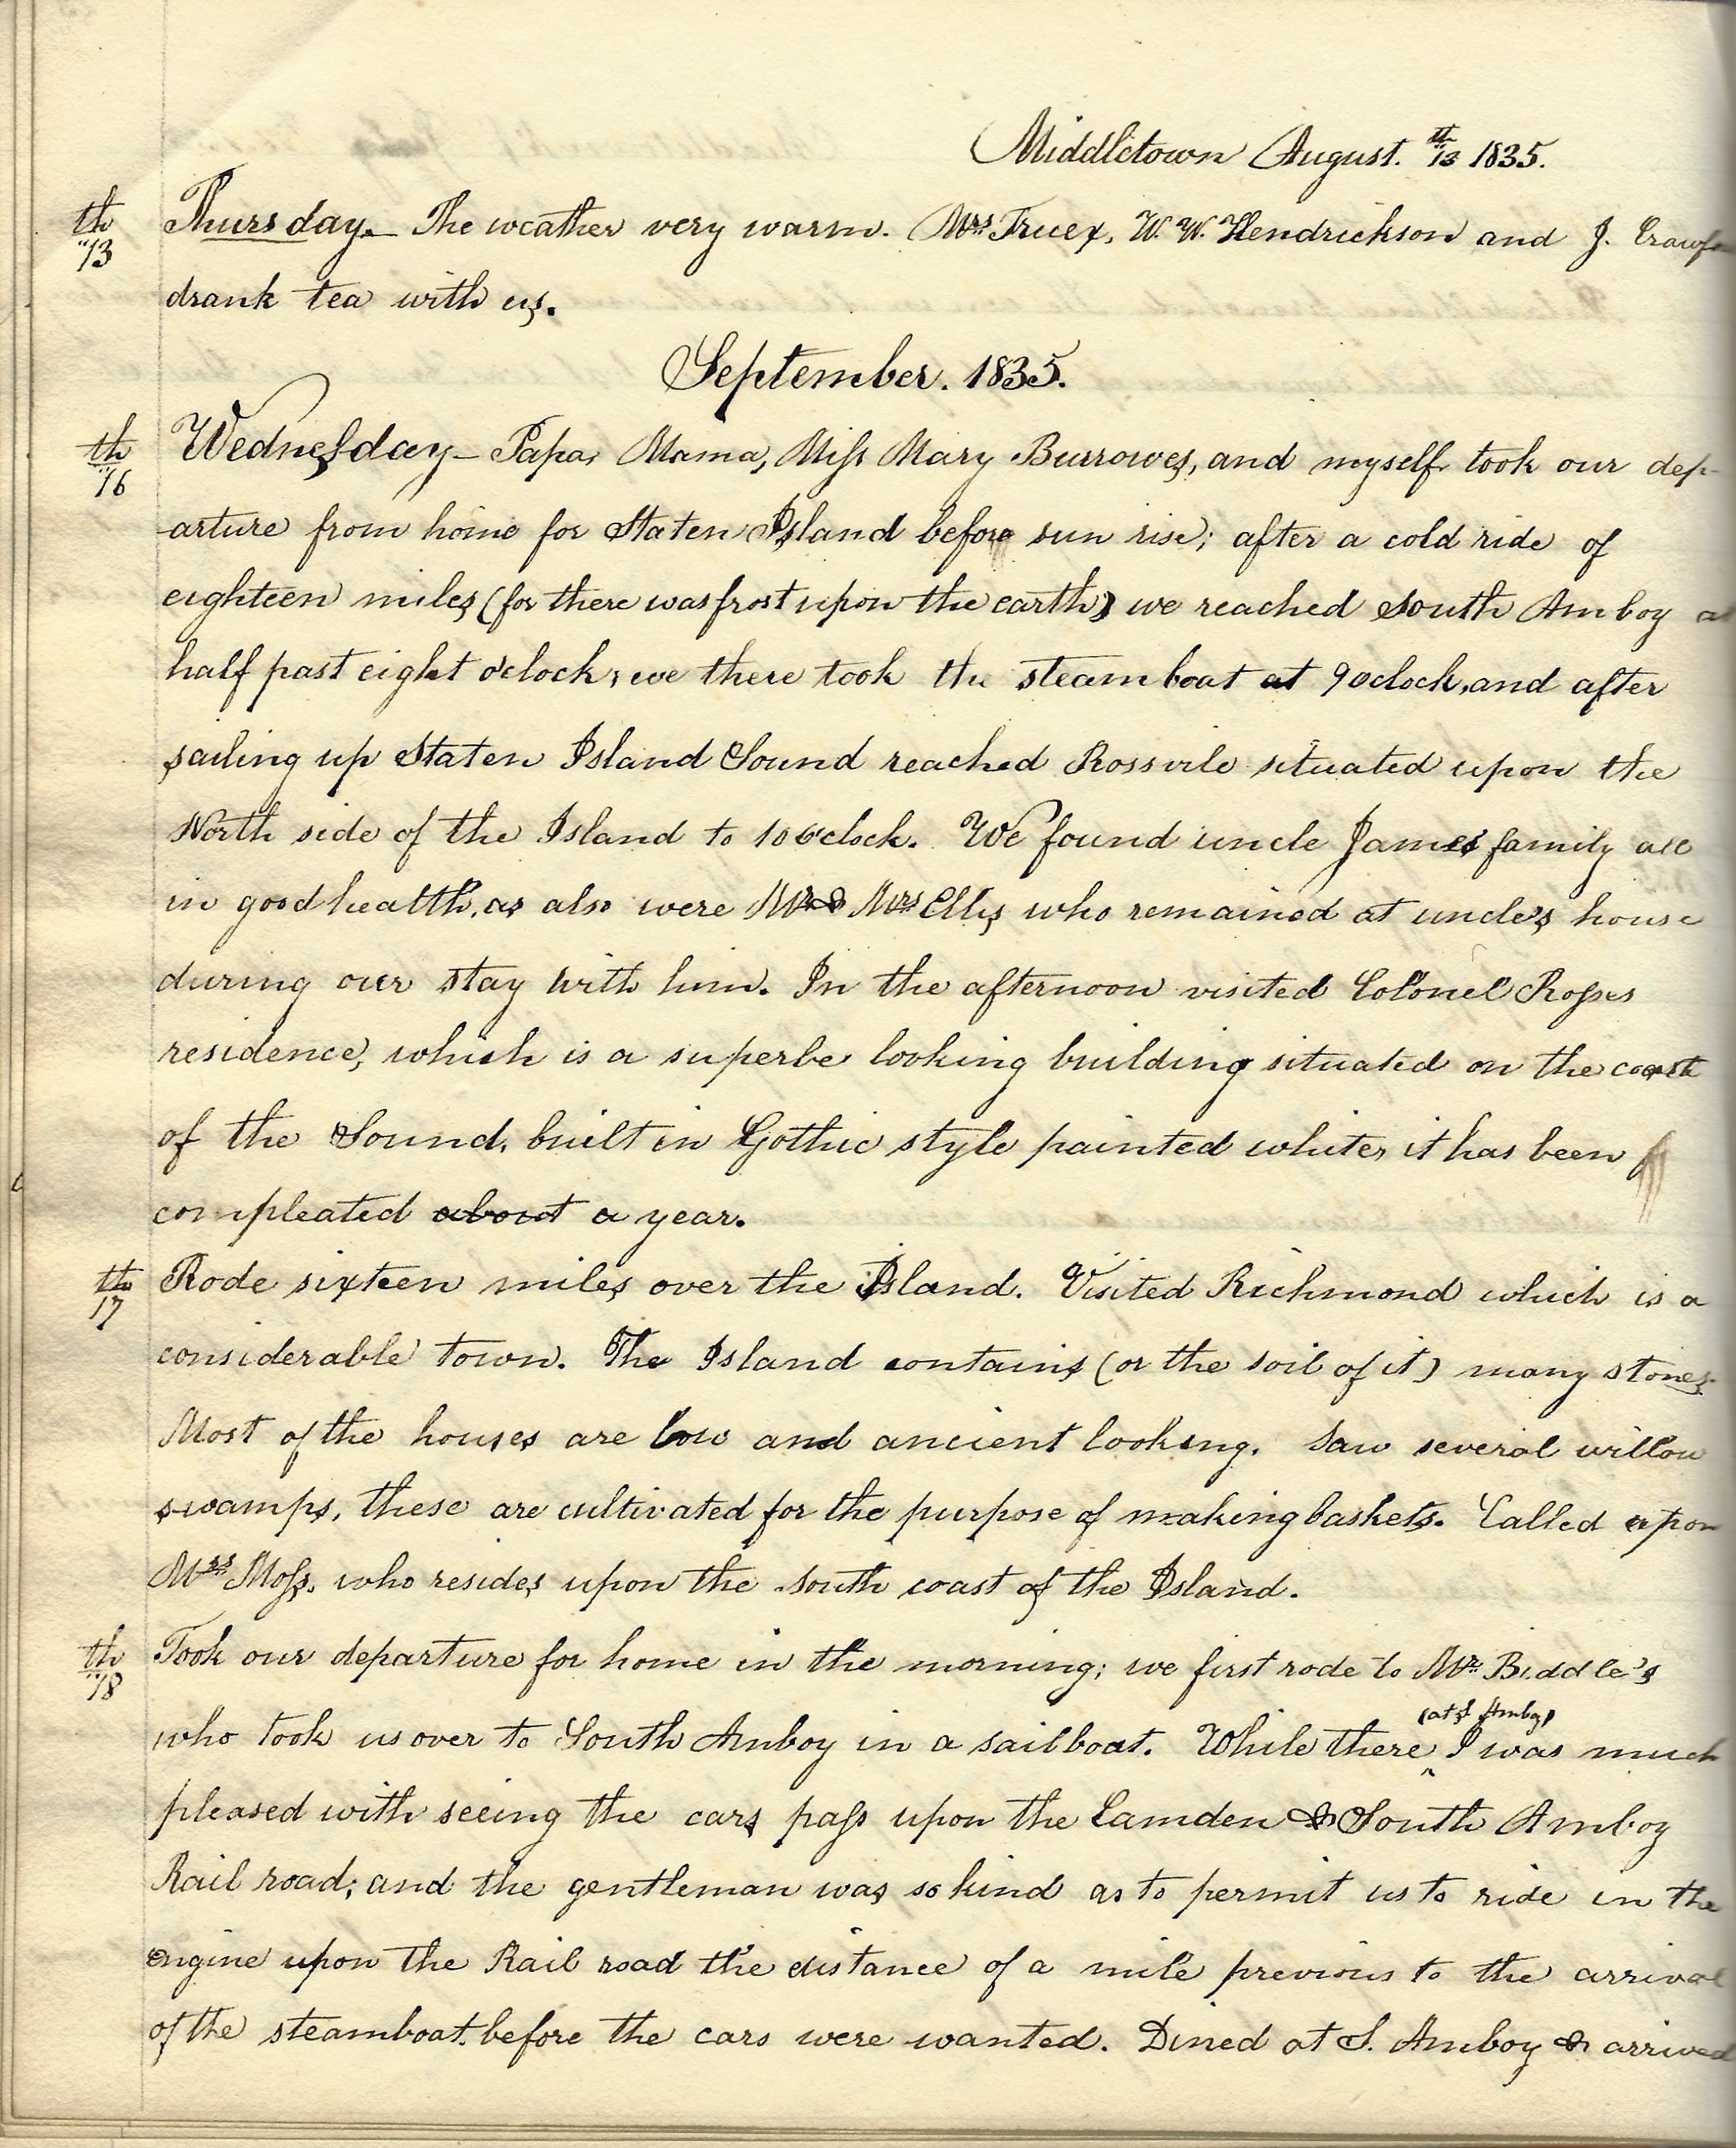 Middletown August. 13th 1835.
13th Thursday. — The weather very warm. Mrs Truex, W. W. Hendrickson and J.
drank tea with us.
September. 1835.
16th Wednesday — Papa, Mama, Miss Mary Burrowes, and myself took our dep-
arture from home for Staten Island before sun rise; after a cold ride of
eighteen miles (for there was frost upon the earth) we reached South Amboy at
half past eight o'clock, we there took the steam boat at 9 oclock, and after
sailing up Staten Island Sound reached Rossvile situated upon the
North side of the Island to 10 o'clock. We found uncle James family all
in good health, as also were Mr & Mrs Ellis who remained at uncle's house
during our stay with him. In the afternoon visited Colonel Rosses
residence, which is a superbe looking building situated on the coast
of the Sound, built in Gothic style painted white, it has been
compleated about a year.
17th Rode sixteen miles over the Island. Visited Richmond which is a
considerable town. The Island contains (or the soil of it) many stones.
Most of the houses are low and ancient looking. Saw several willow
swamps, these are cultivated for the purpose of making baskets. Called upon
Mrs Moss, who resides upon the south coast of the Island.
18th Took our departure for home in the morning; we first rode to Mr. Biddle's
(at S Amboy)
who took us over to South Amboy in a sail boat. While there ^ I was much
pleased with seeing the cars pass upon the Camden & South Amboy
Rail road; and the gentleman was so kind as to permit us to ride in the
engine upon the Rail road the distance of a mile previous to the arrival
of the steamboat, before the cars were wanted. Dined at S. Amboy & arrived